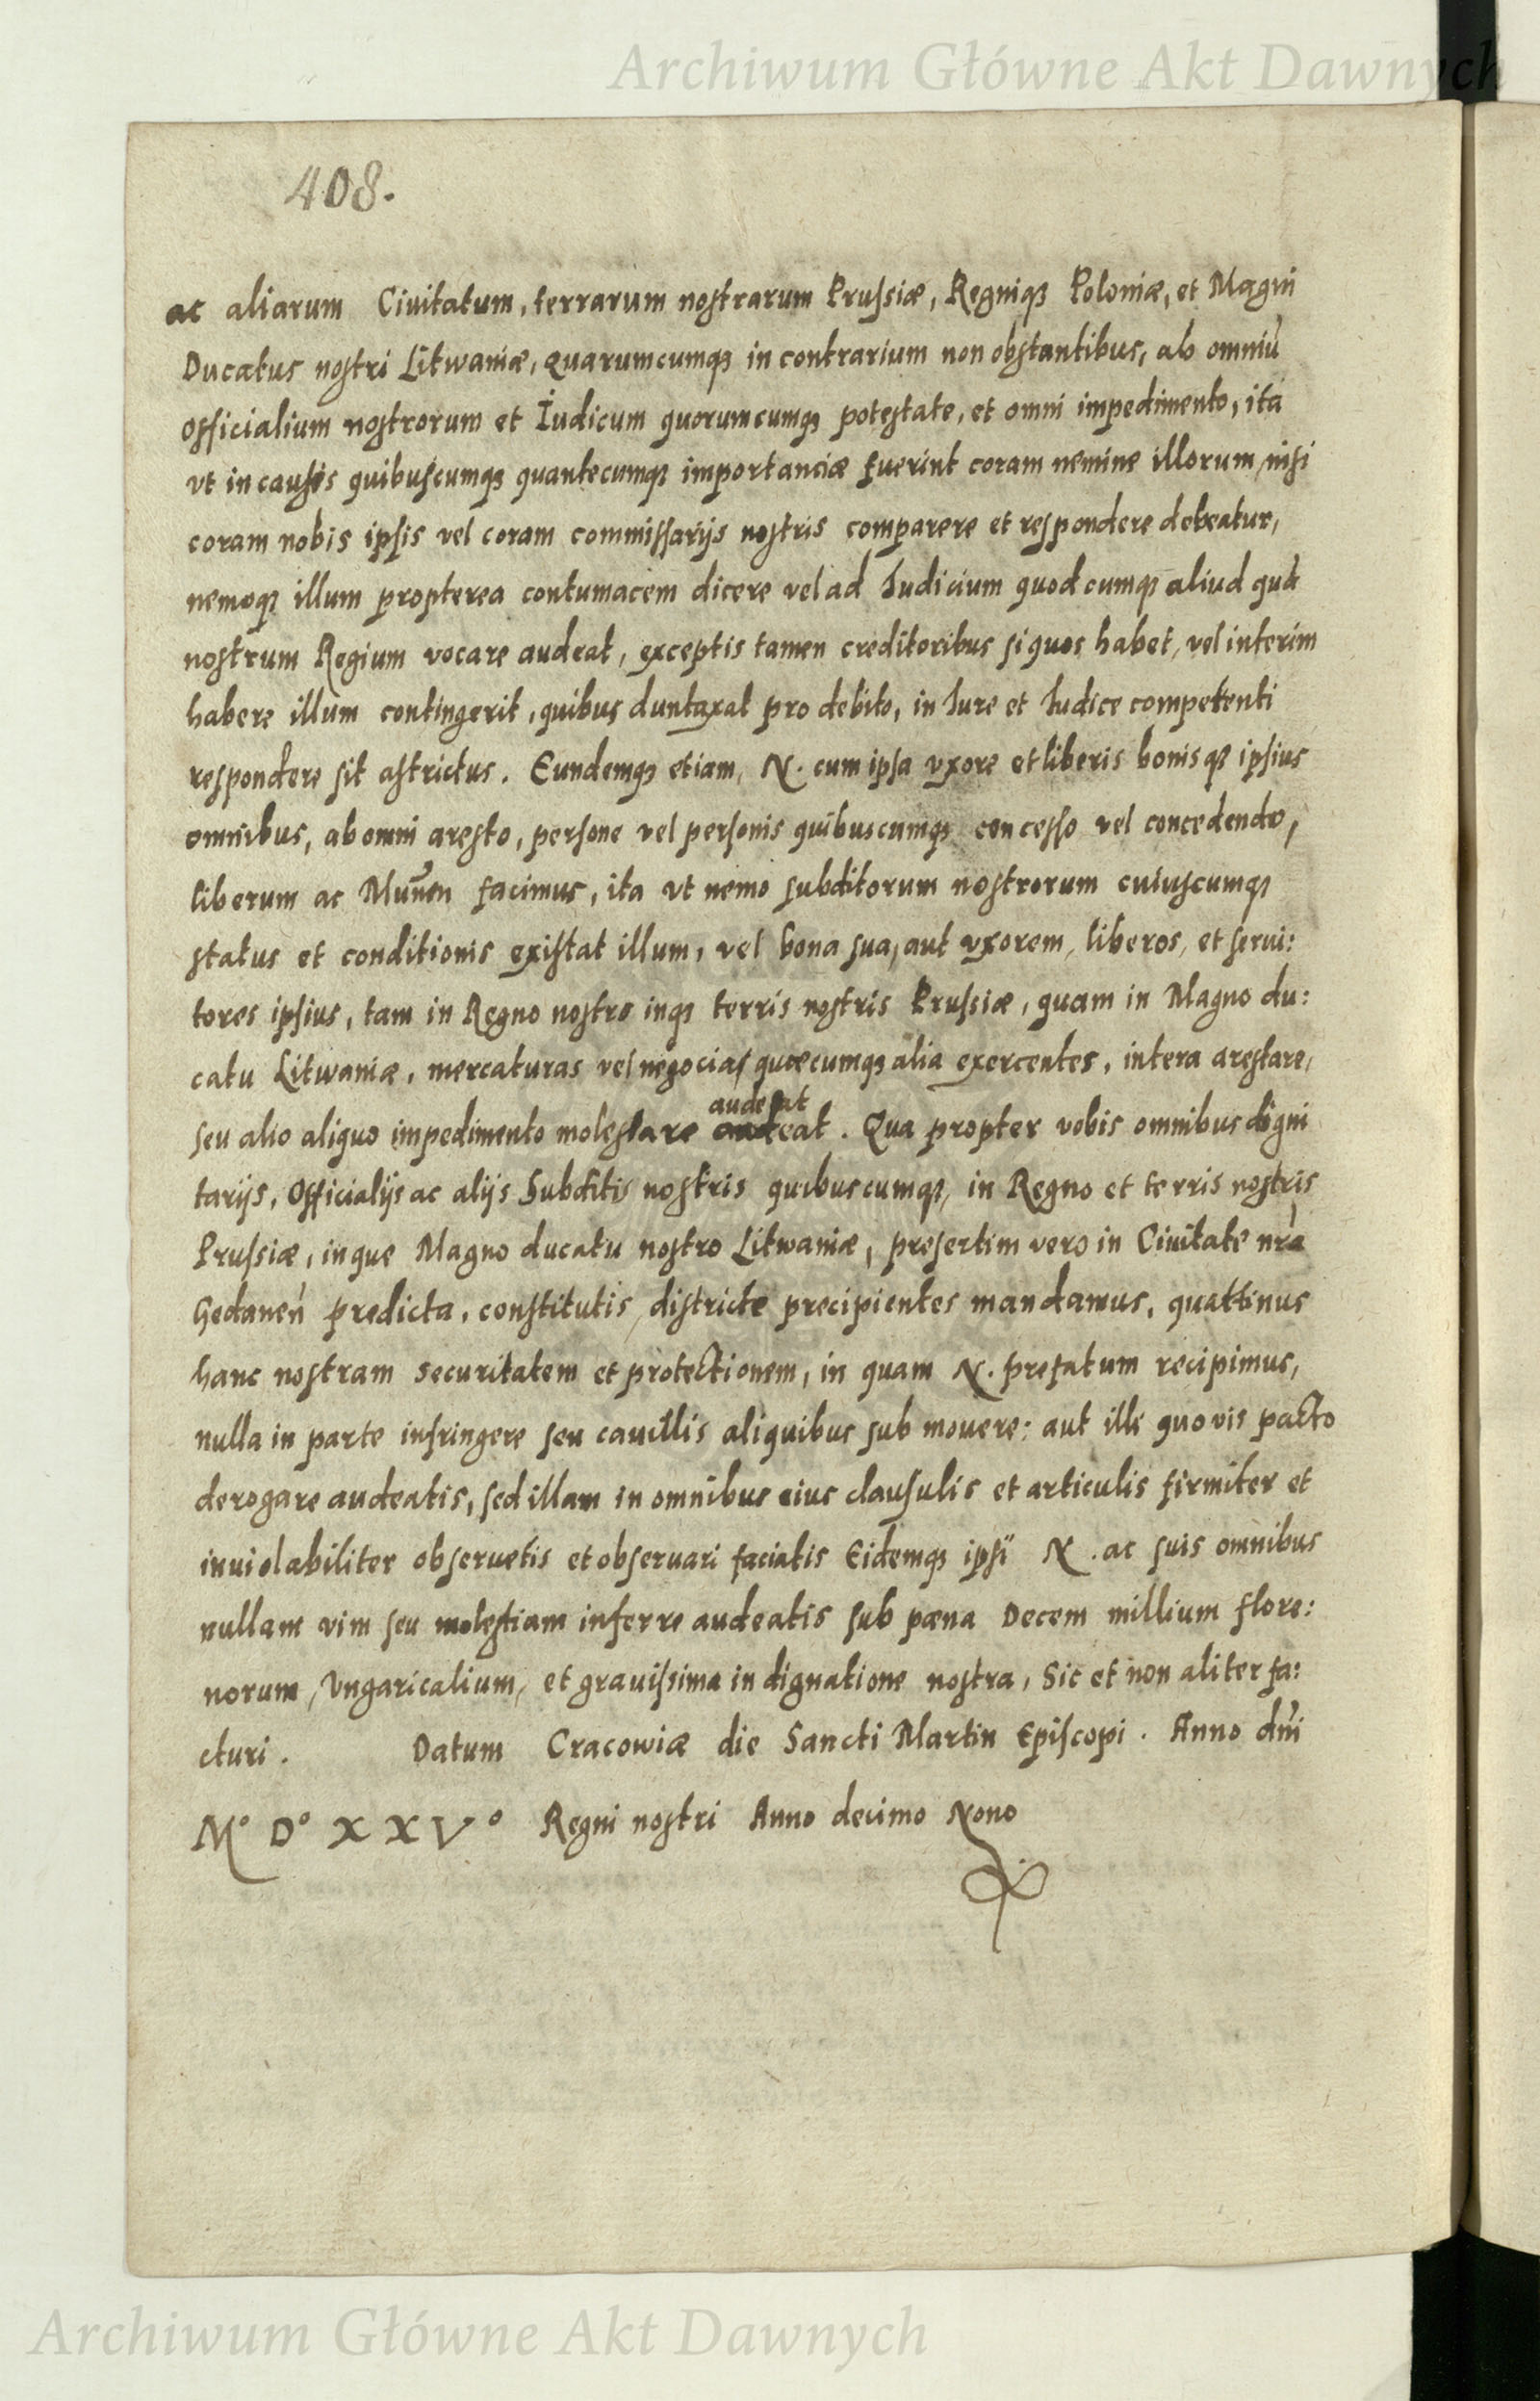 Archiwum Główne Akt Dawnych
408.
ac aliarum Ciuitatum, terrarum nostrarum Prussiæ, Regniqꝫ Poloniæ, et Magni
Ducatus nostri Litwaniæ, quarumcumqꝫ in contrarium non obstantibus, ab omniū
officialium nostrorum et Iudicum quorumcumqꝫ potestate, et omni impedimento, ita
vt in causis quibuscumqꝫ quantecumqꝫ importanciæ fuerint coram nemine illorum, nisi
coram nobis ipsis vel coram commissarijs nostris comparere et respondere debeatur,
nemoqꝫ illum propterea contumacem dicere vel ad Iudicium quodcumqꝫ aliud quā
nostrum Regium vocare audeat, exceptis tamen creditoribus si quos habet, vel interim
habere illum contingerit, quibus duntaxat pro debito, in Iure et Iudice competenti
respondere sit astrictus. Eundemqꝫ etiam, N. cum ipsa vxore et liberis bonisqꝫ ipsius
omnibus, ab omni aresto, persone vel personis quibuscumqꝫ concesso vel concedendo,
liberum ac Munen facimus, ita vt nemo subditorum nostrorum cuiuscumqꝫ
status et conditionis existat illum, vel bona sua, aut vxorem, liberos, et serui:
tores ipsius, tam in Regno nostro inqꝫ terris nostris Prussiæ, quam in Magno du:
catu Litwaniæ, mercaturas vel negocias quæcumqꝫ alia exercentes, intera arestare,
audeat
seu alio aliquo impedimento molestare audeat. Qua propter vobis omnibus digni
tarijs, Officialijs ac alijs Subditis nostris quibuscumqꝫ, in Regno et terris nostris
Prussiæ, inque Magno ducatu nostro Litwaniæ, presertim vero in Ciuitate nr̄a
Gedanen̄ predicta, constitutis, districte precipientes mandamus, quattinus
hanc nostram securitatem et protectionem, in quam N. prefatum recipimus,
nulla in parte infringere seu cauillis aliquibus sub mouere: aut illi quovis pacto
derogare audeatis, sed illam in omnibus eius clausulis et articulis firmiter et
inuiolabiliter obseruetis et obseruari faciatis Eidemqꝫ ipsi N. ac suis omnibus
nullam vim seu molestiam inferre audeatis sub pæna Decem millium flore:
norum, Vngaricalium, et grauissima indignatione nostra, Sic et non aliter fa:
cturi. Datum Cracowiæ die Sancti Martin Episcopi. Anno dn̄i
Mº Dº X X Vº Regni nostri Anno decimo Nono
Archiwum Główne Akt Dawnych